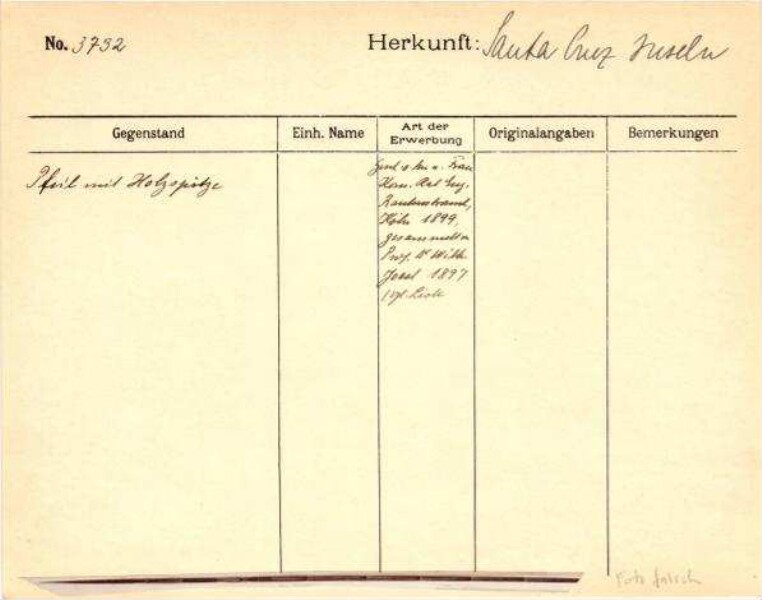 No. 3792
Herkunft: Santa Cruz Inseln
Gegenstand
Einh. Name
Art der
Erwerbung
Originalangaben
Bemerkungen
Pfeil mit Holzspitze
Frau
Kom. Rat Eug.
Rautenstrauch,
Köln 1899,
gesammelt v.
Prof. Dr Wilh.
Joest 1897
Foto falsch